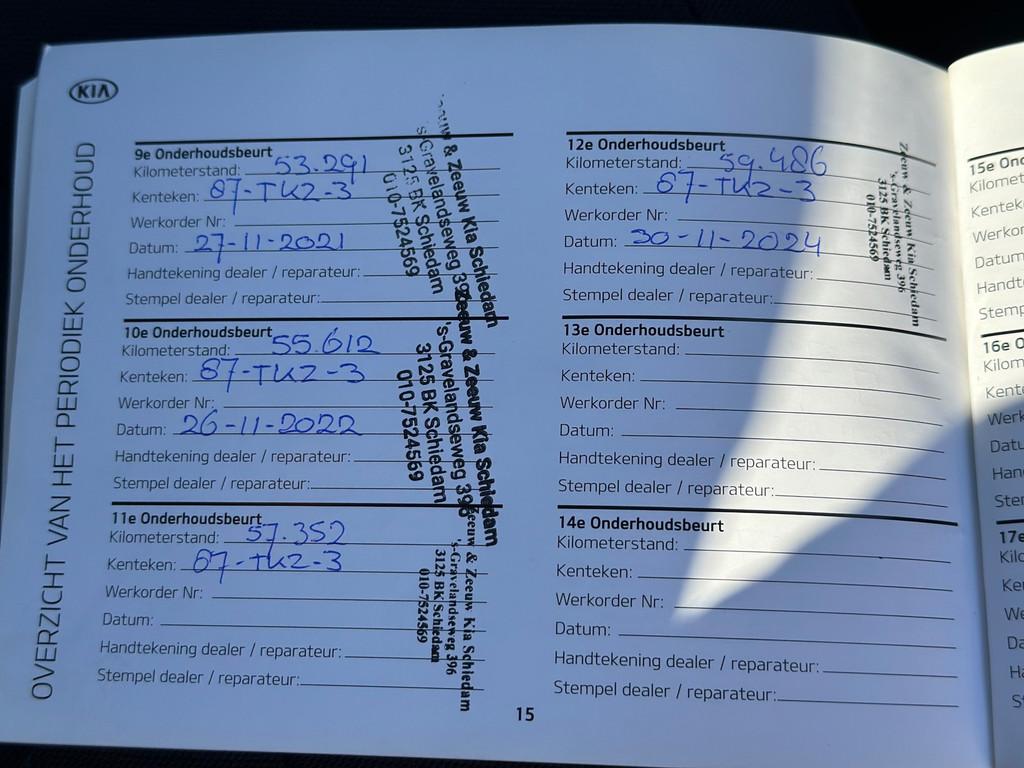 KIA
OVERZICHT VAN HET PERIODIEK ONDERHOUD
9e Onderhoudsbeurt
Kilometerstand: 53.291
Kenteken: 67-TKZ-3
Werkorder Nr:
Datum: 27-11-2021
Handtekening dealer / reparateur:
Stempel dealer / reparateur:
Zeeuw & Zeeuw Kia Schiedam
's-Gravelandseweg 396
3125 BK Schiedam
010-7524569
10e Onderhoudsbeurt
Kilometerstand: 55.612
Kenteken: 67-TKZ-3
Werkorder Nr:
Datum: 26-11-2022
Handtekening dealer / reparateur:
Stempel dealer / reparateur:
Zeeuw & Zeeuw Kia Schiedam
's-Gravelandseweg 396
3125 BK Schiedam
010-7524569
11e Onderhoudsbeurt
Kilometerstand: 57.352
Kenteken: 67-TKZ-3
Werkorder Nr:
Datum:
Handtekening dealer / reparateur:
Stempel dealer / reparateur:
Zeeuw & Zeeuw Kia Schiedam
's-Gravelandseweg 396
3125 BK Schiedam
010-7524569
12e Onderhoudsbeurt
Kilometerstand: 59.486
Kenteken: 67-TKZ-3
Werkorder Nr:
Datum: 30-11-2024
Handtekening dealer / reparateur:
Stempel dealer / reparateur:
Zeeuw & Zeeuw Kia Schiedam
's-Gravelandseweg 396
3125 BK Schiedam
010-7524569
13e Onderhoudsbeurt
Kilometerstand:
Kenteken:
Werkorder Nr:
Datum:
Handtekening dealer / reparateur:
Stempel dealer / reparateur:
14e Onderhoudsbeurt
Kilometerstand:
Kenteken:
Werkorder Nr:
Datum:
Handtekening dealer / reparateur:
Stempel dealer / reparateur:
15
15e Ond
Kilomet
Kentek
Werkor
Datum
Handt
Stemp
16e O
Kilom
Kente
Werk
Datu
Han
Ster
17e
Kilo
Ke
We
Da
Ha
St